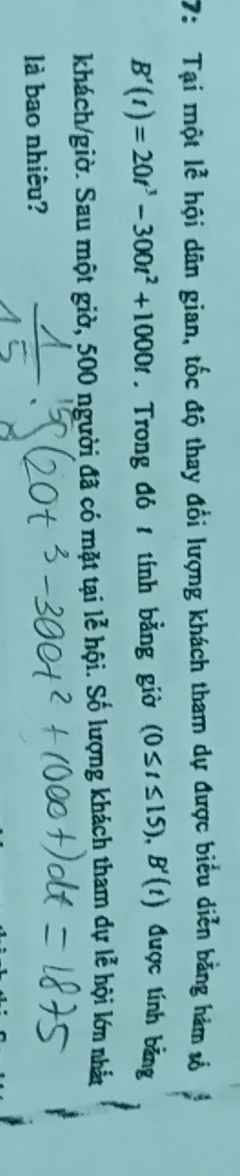 7: Tại một lễ hội dân gian, tốc độ thay đổi lượng khách tham dự được biểu diễn bằng hàm số
B'(t) = 20t³ − 300t² + 1000t. Trong đó t tính bằng giờ (0 ≤ t ≤ 15), B'(t) được tính bằng
khách/giờ. Sau một giờ, 500 người đã có mặt tại lễ hội. Số lượng khách tham dự lễ hội lớn nhất
là bao nhiêu?
1/15 · ∫ 15 (20t³ − 300t² + 1000t)dt = 1875